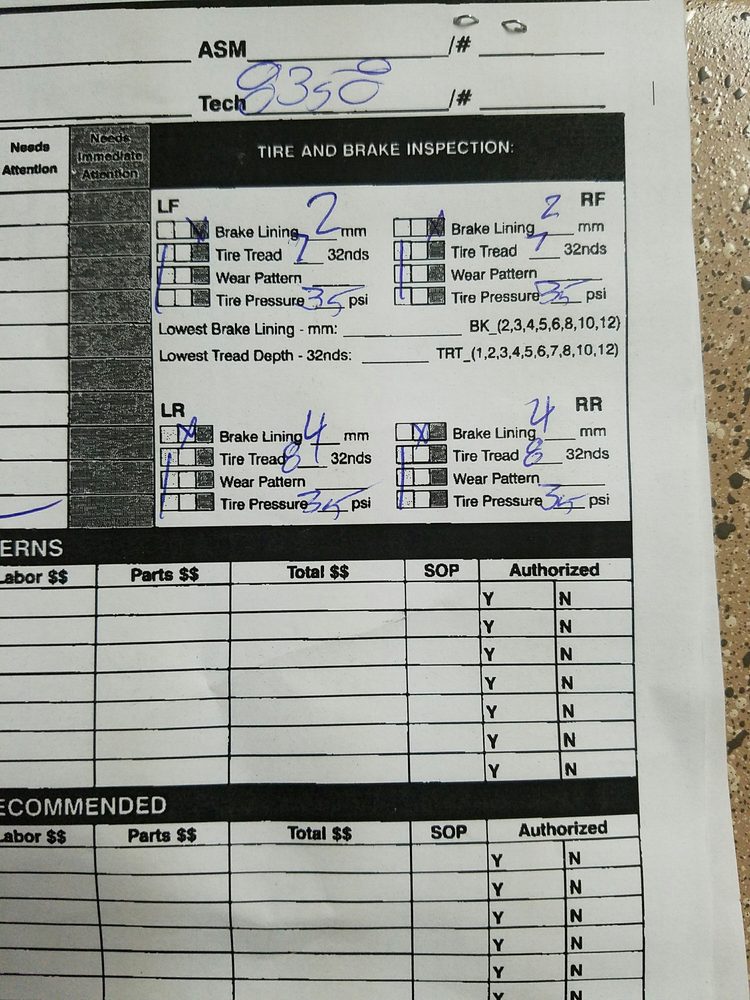 ASM /#
Tech 9350 /#
Needs Attention
Needs Immediate Attention
TIRE AND BRAKE INSPECTION:
LF RF
Brake Lining 2 mm Brake Lining 2 mm
Tire Tread 7 32nds Tire Tread 7 32nds
Wear Pattern Wear Pattern
Tire Pressure 35 psi Tire Pressure 35 psi
Lowest Brake Lining - mm: BK_(2,3,4,5,6,8,10,12)
Lowest Tread Depth - 32nds: TRT_(1,2,3,4,5,6,7,8,10,12)
LR RR
X Brake Lining 4 mm X Brake Lining 4 mm
Tire Tread 8 32nds Tire Tread 8 32nds
Wear Pattern Wear Pattern
Tire Pressure 35 psi Tire Pressure 35 psi
ERNS
Labor $$ Parts $$ Total $$ SOP Authorized
Y N
Y N
Y N
Y N
Y N
Y N
Y N
ECOMMENDED
Labor $$ Parts $$ Total $$ SOP Authorized
Y N
Y N
Y N
Y N
Y N
Y N